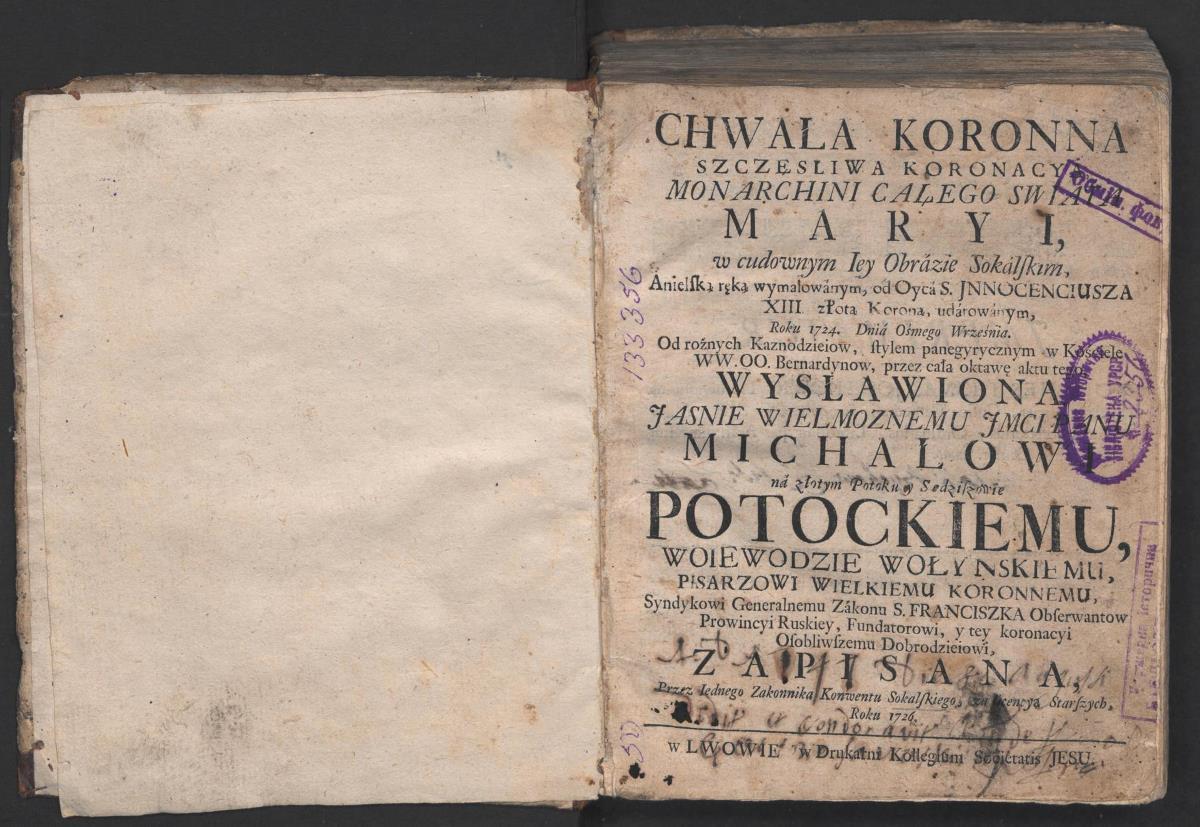 CHWAŁA KORONNA
SZCZĘSLIWA KORONACY
MONARCHINI CAŁEGO SWIATA
MARYI,
w cudownym Iey Obrázie Sokálſkim,
Anielſką ręką wymalowánym, od Oycá S. JNNOCENCIUSZA
XIII. złotą Korona, udárowánym,
Roku 1724. Dniá Ośmego Września.
Od rożnych Kaznodzieiow, ſtylem panegyrycznym w Kościele
WW. OO. Bernardynow, przez cała oktawę aktu tego,
WYSŁAWIONA
JASNIE WIELMOZNEMU JMCI PANU
MICHAŁOWI
ná złotym Potoku y Sędziſzowie
POTOCKIEMU,
WOIEWODZIE WOŁYNSKIEMU,
PISARZOWI WIELKIEMU KORONNEMU,
Syndykowi Generalnemu Zákonu S. FRANCISZKA Obſerwantow
Prowincyi Ruskiey, Fundatorowi, y tey koronacyi
Oſobliwſzemu Dobrodzieiowi,
ZAPISANA,
Przez Iednego Zakonnika Konwentu Sokalſkiego, za licencyą Starſzych,
Roku 1726.
w LWOWIE w Drukarni Kollegium Societatis JESU.
133356